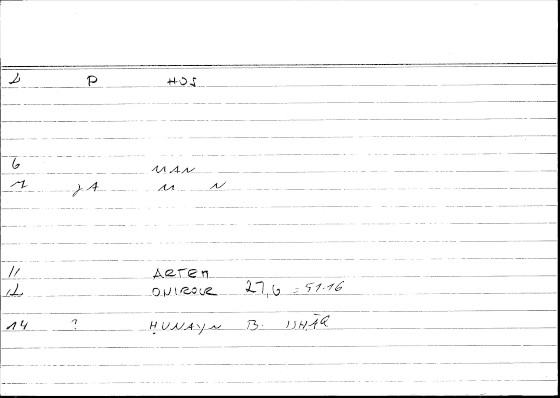 2 P HOS
6 MAN
7 JA M N
11 ARTEM
12 ONIROCR 27,6 = 51.16
14 ? ḤUNAYN B. ISḤĀQ